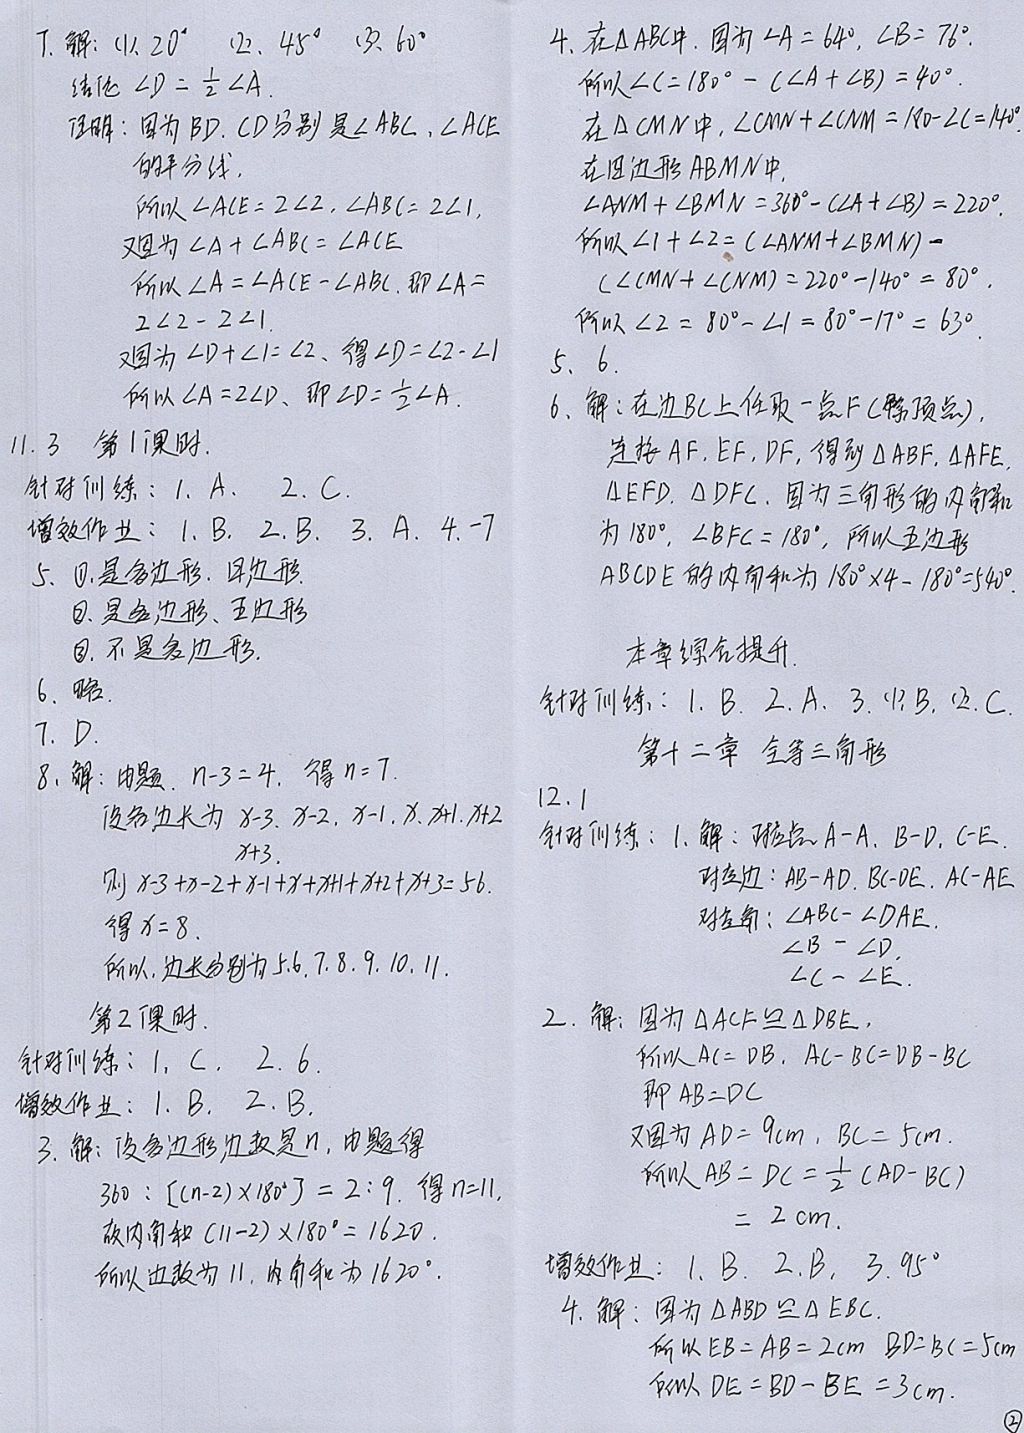 7. 解: (1). 20° (2). 45° (3). 60°
结论 ∠D = 1/2 ∠A.
证明: 因为BD、CD分别是∠ABC、∠ACE
的平分线,
所以 ∠ACE = 2∠2, ∠ABC = 2∠1,
又因为 ∠A + ∠ABC = ∠ACE
所以 ∠A = ∠ACE - ∠ABC. 即 ∠A =
2∠2 - 2∠1.
又因为 ∠D + ∠1 = ∠2、得 ∠D = ∠2 - ∠1
所以 ∠A = 2∠D、即 ∠D = 1/2 ∠A.
11.3 第1课时.
针对训练: 1. A. 2. C.
增效作业: 1. B. 2. B. 3. A. 4. -7
5、①.是多边形、四边形.
②.是多边形、五边形
③.不是多边形.
6、略.
7. D.
8、解: 由题. n-3=4, 得n=7.
设各边长为 x-3. x-2. x-1. x. x+1. x+2
x+3.
则 x-3+x-2+x-1+x+x+1+x+2+x+3=56.
得 x=8.
所以, 边长分别为5.6.7.8.9.10.11.
第2课时.
针对训练: 1. C. 2. 6.
增效作业: 1. B. 2. B.
3. 解: 设多边形边数是n, 由题得
360 : [(n-2)×180°] = 2:9. 得n=11,
故内角和 (11-2)×180° = 1620.
所以边数为11, 内角和为1620°.
4. 在△ABC中. 因为∠A = 64°, ∠B = 76°.
所以∠C = 180° - (∠A + ∠B) = 40°.
在△CMN中, ∠CMN + ∠CNM = 180-∠C = 140°.
在四边形ABMN中,
∠ANM + ∠BMN = 360° - (∠A + ∠B) = 220°.
所以 ∠1 + ∠2 = (∠ANM + ∠BMN) -
(∠CMN + ∠CNM) = 220° - 140° = 80°.
所以 ∠2 = 80° - ∠1 = 80° - 17° = 63°.
5、6.
6、解: 在边BC上任取一点F(除顶点),
连接AF, EF, DF, 得到△ABF, △AFE,
△EFD. △DFC. 因为三角形的内角和
为180°, ∠BFC = 180°, 所以五边形
ABCDE的内角和为180°×4-180°=540°.
本章综合提升.
针对训练: 1. B. 2. A. 3. (1). B. (2). C.
第十二章 全等三角形
12.1
针对训练: 1. 解: 对应点 A-A. B-D. C-E.
对应边: AB-AD. BC-DE. AC-AE
对应角: ∠ABC - ∠DAE.
∠B - ∠D.
∠C - ∠E.
2. 解: 因为△ACF≌△DBE,
所以 AC = DB. AC - BC = DB - BC
即 AB = DC
又因为 AD = 9cm, BC = 5cm.
所以 AB = DC = 1/2 (AD - BC)
= 2cm.
增效作业: 1. B. 2. B. 3. 95°
4. 解: 因为△ABD≌△EBC.
所以 EB = AB = 2cm BD = BC = 5cm
所以 DE = BD - BE = 3cm.
②